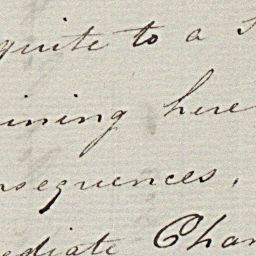 quite to a
ining here
nsequences,
ediate Chan